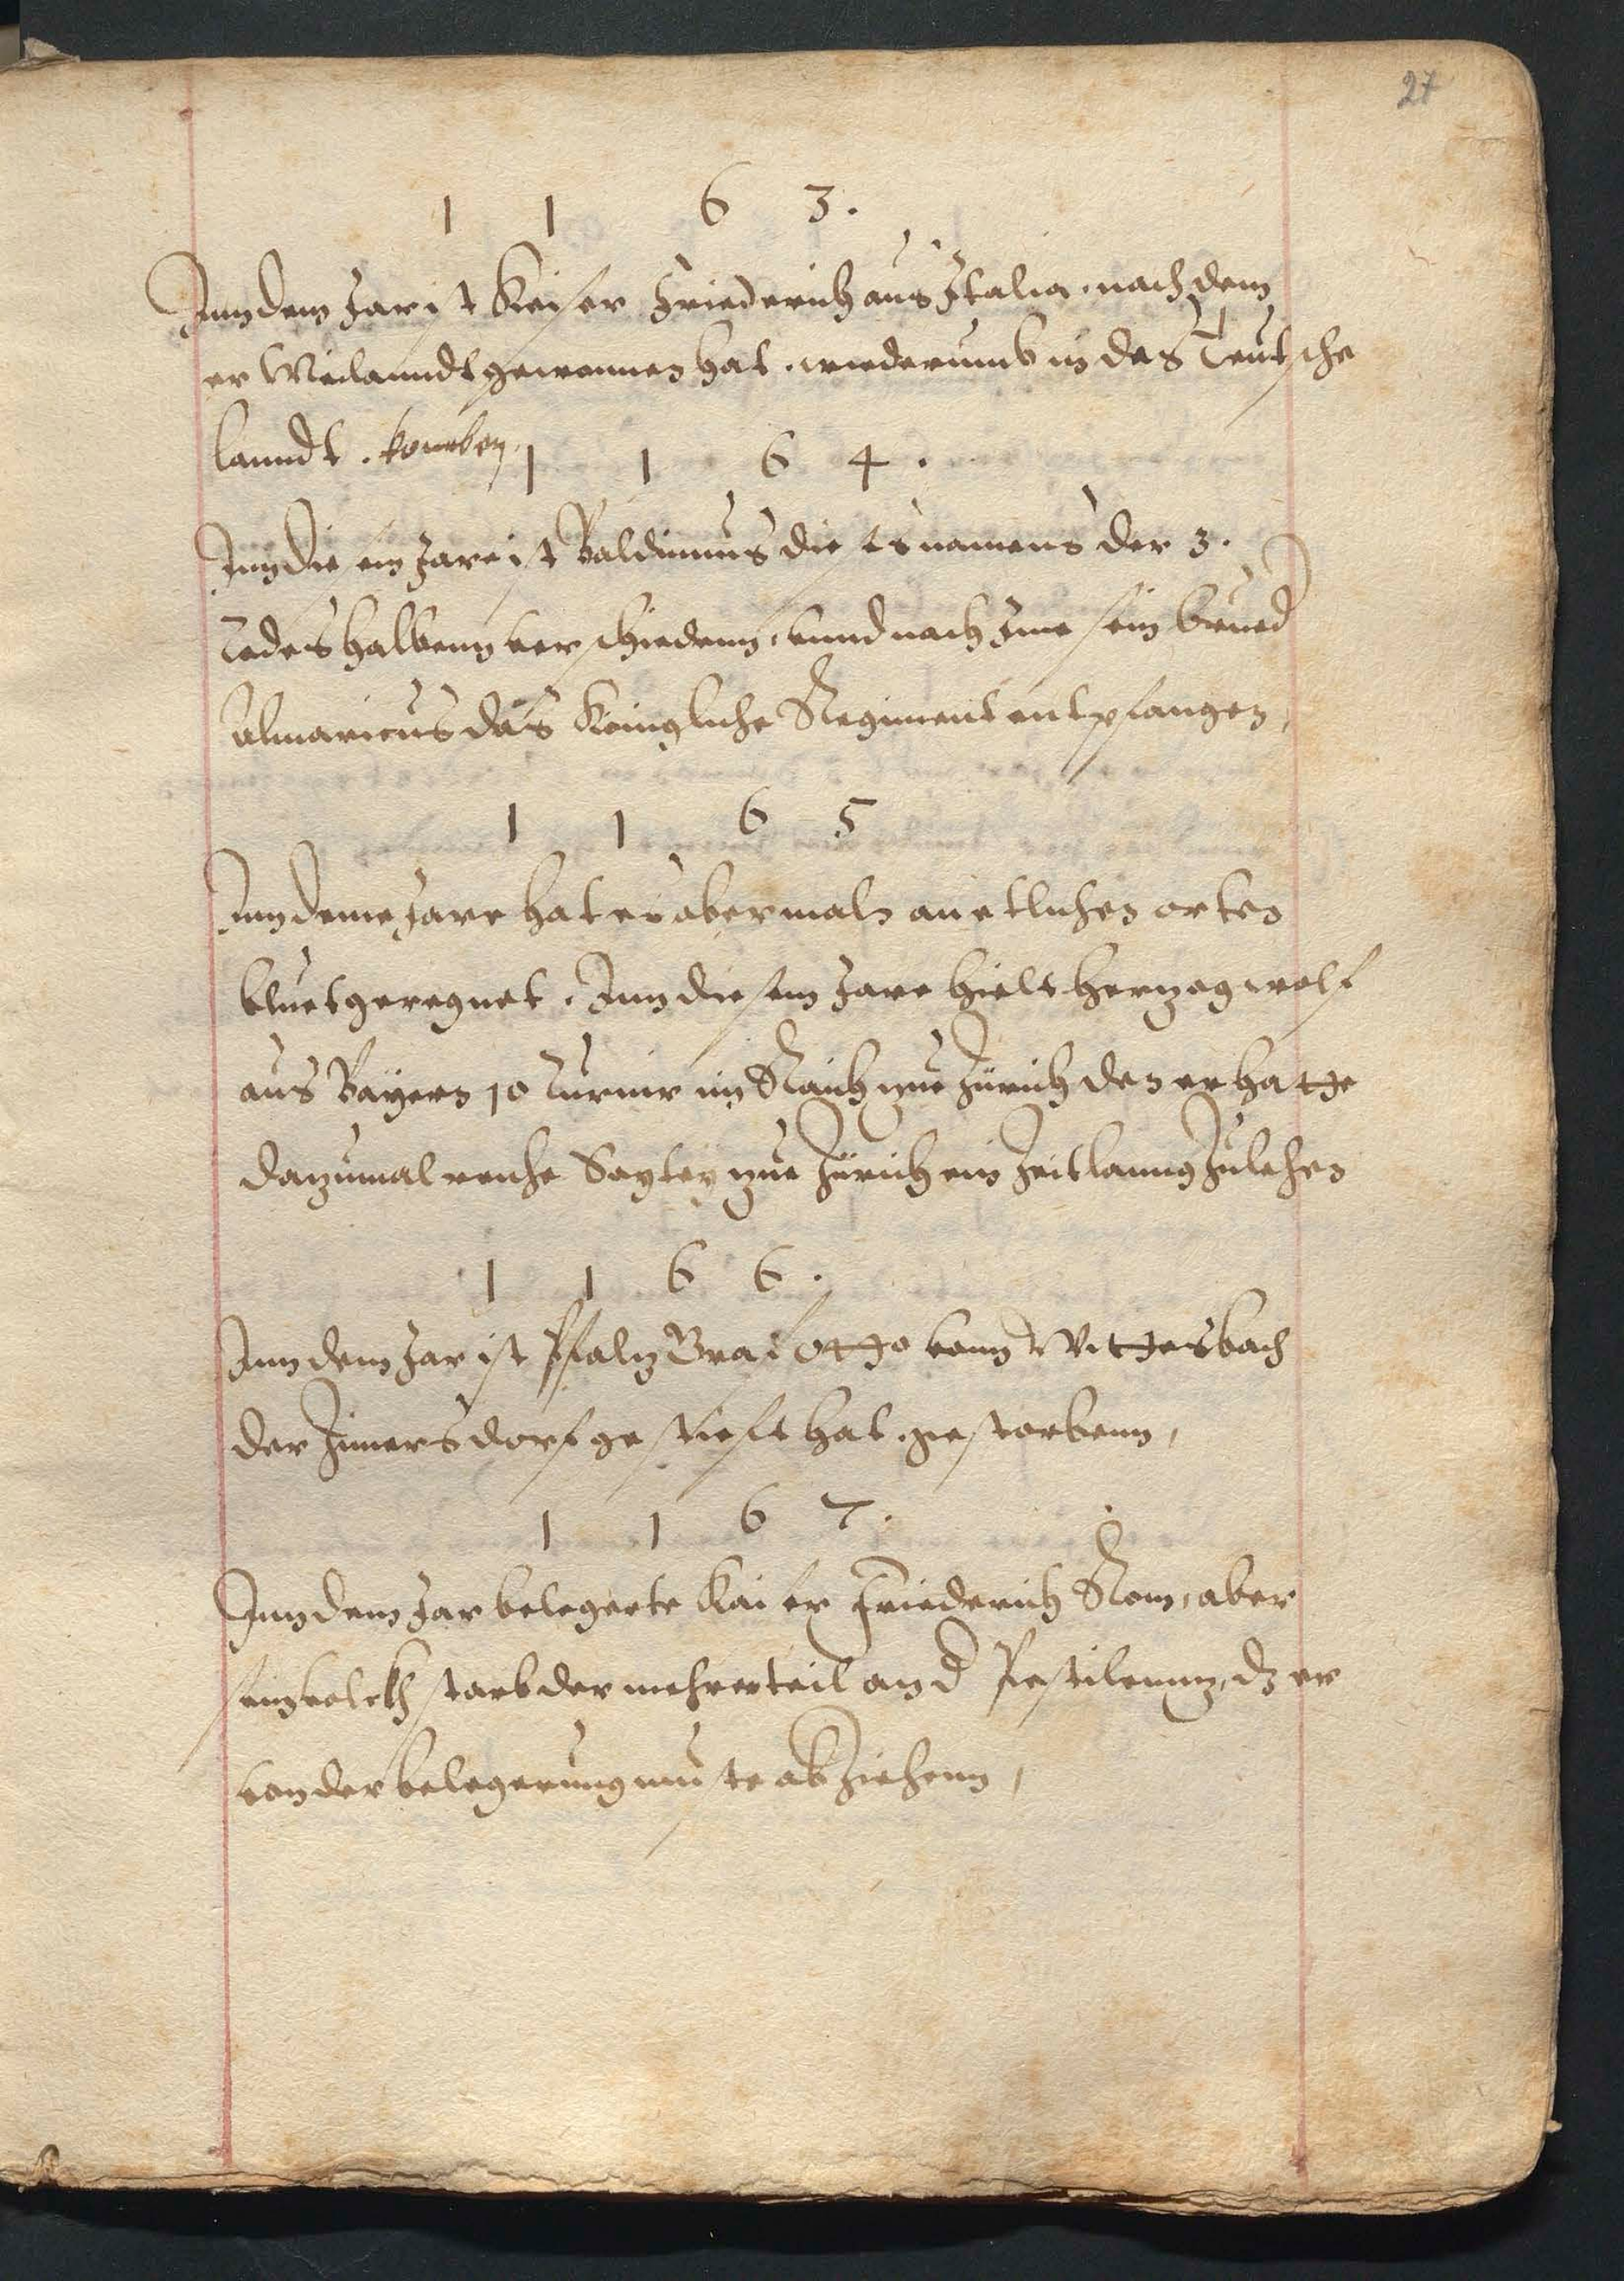 27
1 1 6 3.
Inn dem Jar ist Keiser Friederich aus Italia, nach dem
er Meilanndt gewonnen hat, wiederumb in das Teutsche
lanndt. komben
1 1 6 4.
Inn die em Jare ist Baldinnus die es namens der 3.
Todeshalbenn verschiedenn, vnnd nach Ime sein brued
Almaricus das Königliche Regiment entpfangen,
1 1 6 5
Inn deme Jare hat es abermaln an etlichen orten
bluet geregnet. Inn diesem Jare hielt herzog welf
aus Bayern 10 Turnir im Reich zue Zürich den er hatte
dazumal reiche Vogtey zue Zürich ein Zeitlanng Zulehen
1 1 6 6.
Inn dem Jar ist Pfalz Graf Otto vonn Wittesbach
der Innersdorf gestieft hat, gestorbenn,
1 1 6 7.
Inn dem Jar belegerte Kaiser Friederich Rom, aber
sein volckh starb der mehrerteil an d Pestilennz, dz er
von der belegerung muste abZiehenn,